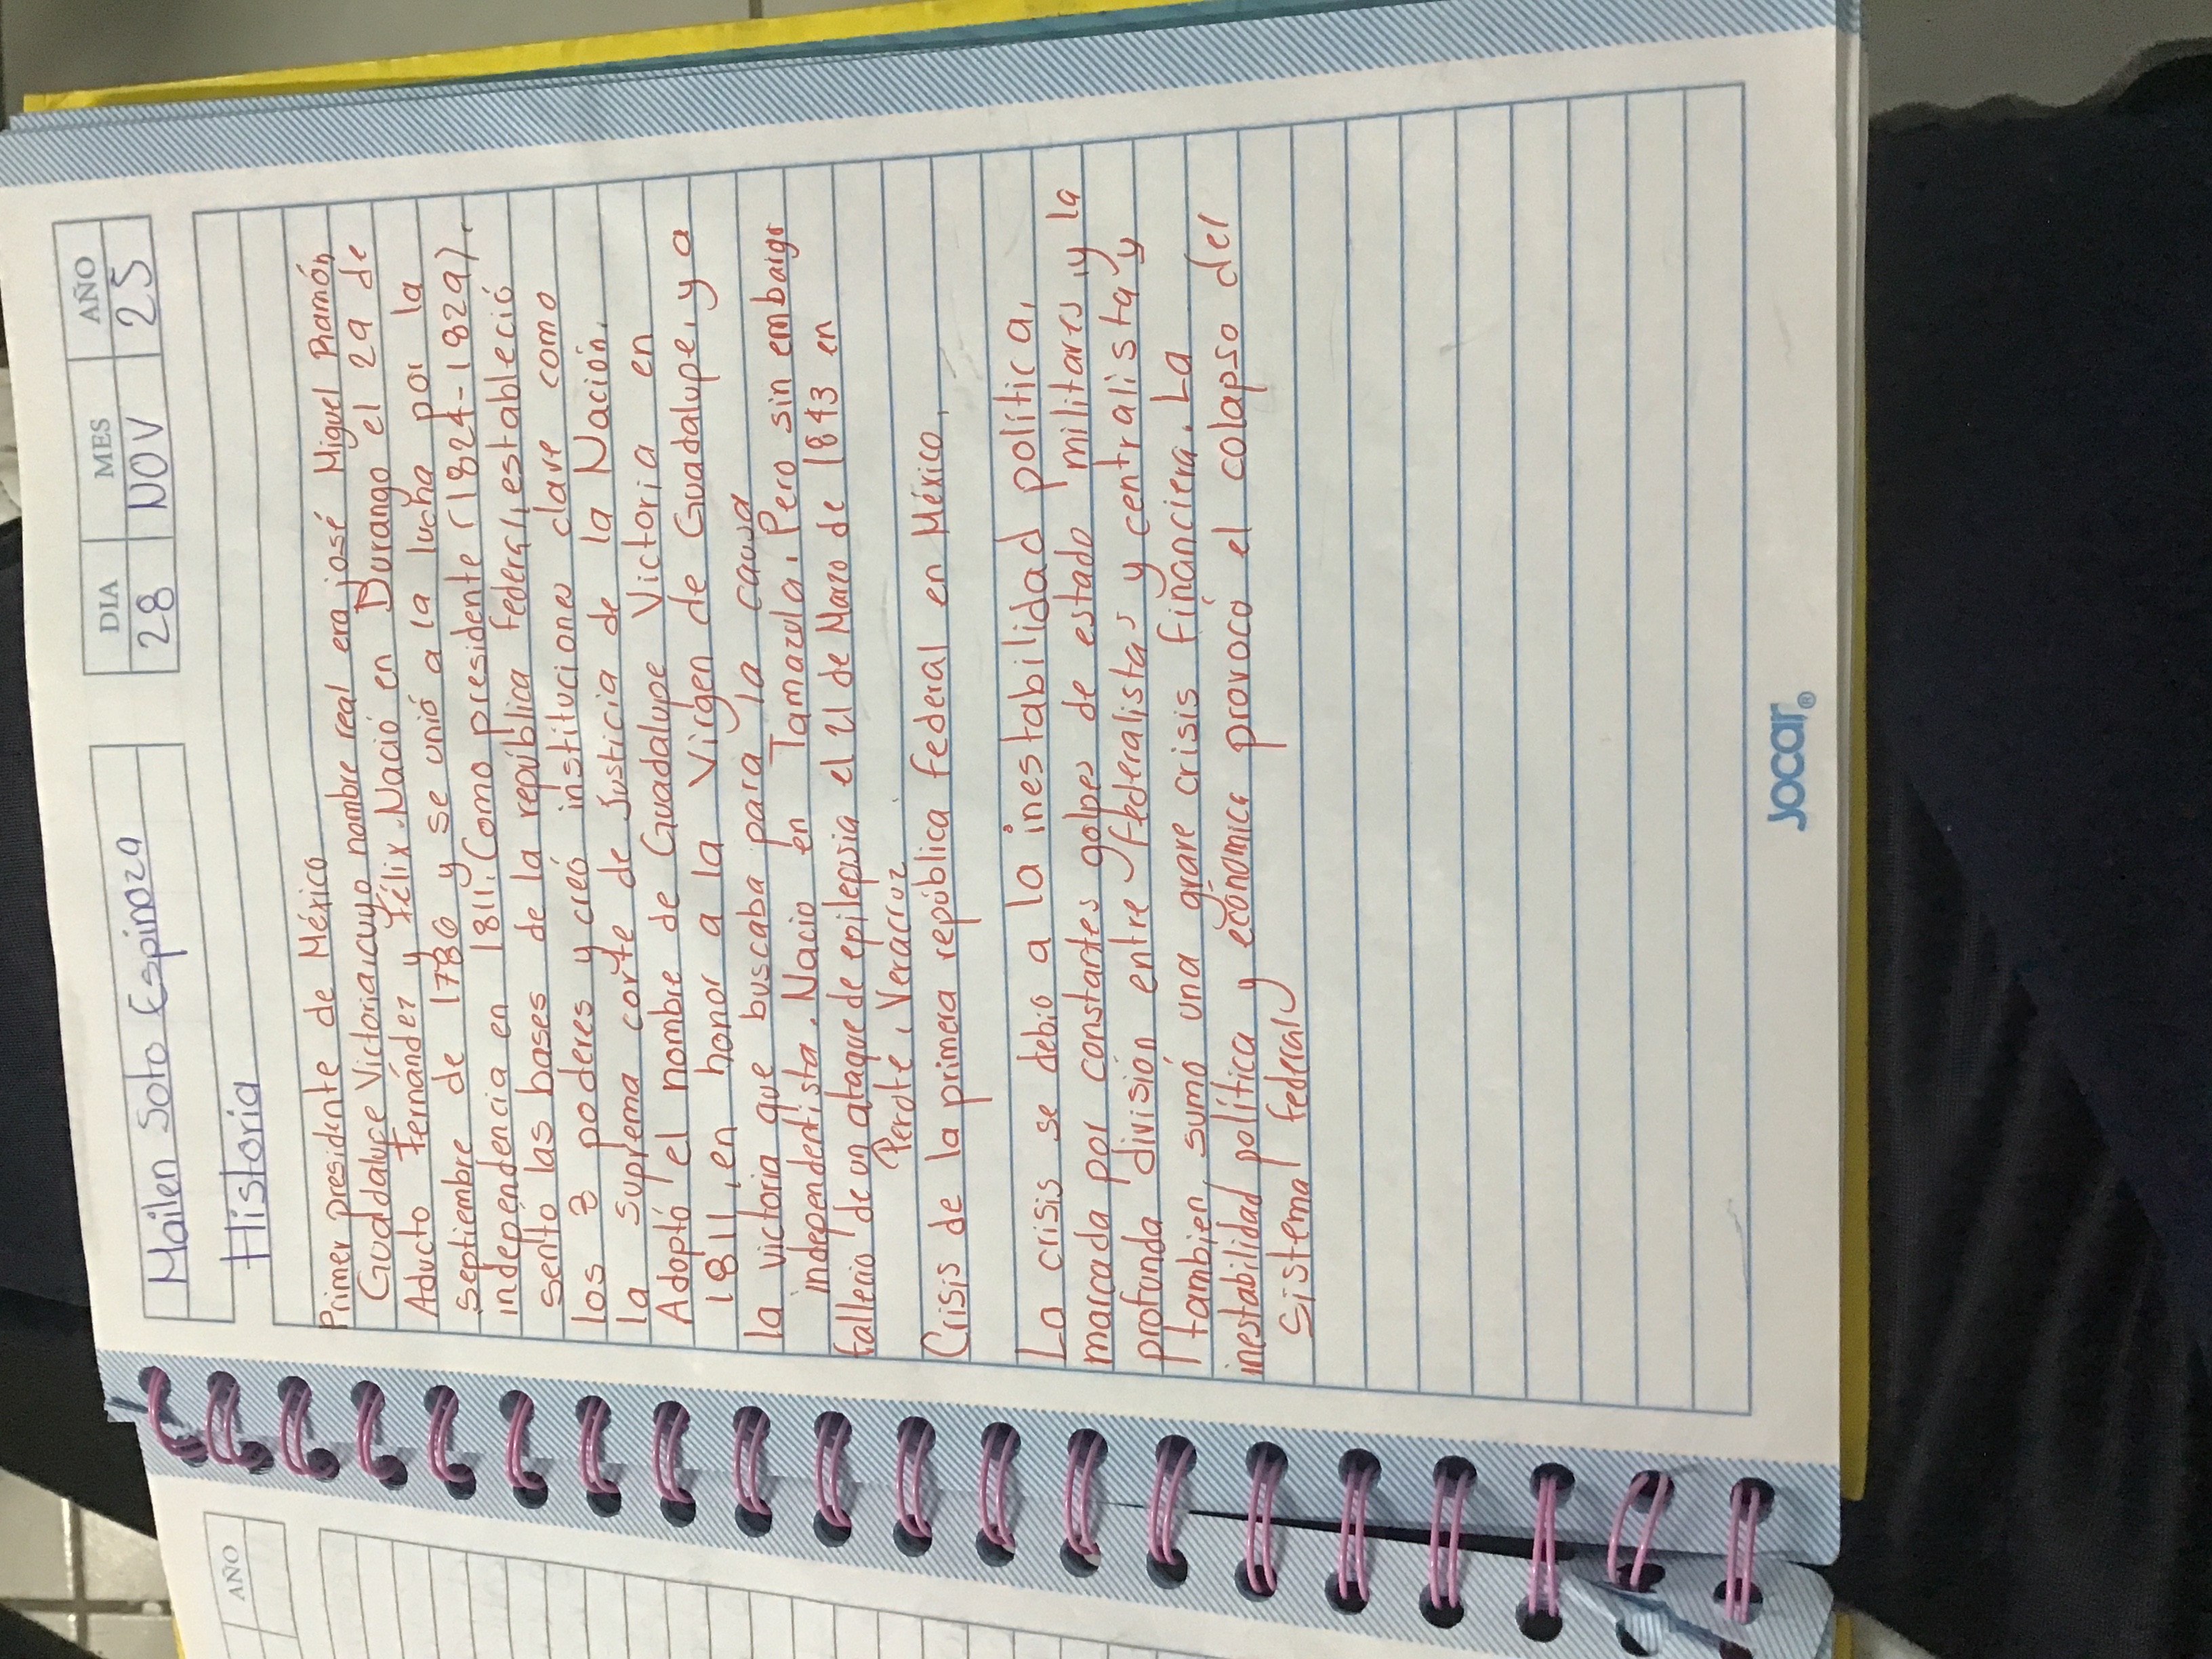 Mailen Soto Espinoza
DIA MES AÑO
28 NOV 25
Historia
Primer presidente de México
Guadalupe Victoria, cuyo nombre real era josé Miguel Ramón
Aducto Fernández y Félix. Nació en Durango el 29 de
Septiembre de 1786 y se unió a la lucha por la
independencia en 1811. Como presidente (1824-1829).
sento las bases de la república federal, estableció
los 3 poderes y creó instituciones clave como
la suprema corte de Justicia de la Nación.
Adoptó el nombre de Guadalupe Victoria en
1811, en honor a la Virgen de Guadalupe, y a
la victoria que buscaba para la causa
independentista. Nacio en Tamazula. Pero sin embargo
fallecio de un ataque de epilepsia el 21 de Marzo de 1843 en
Perote, Veracruz.
Crisis de la primera república federal en México.
La crisis se debio a la inestabilidad política,
marcada por constantes golpes de estado militares, y la
profunda división entre federalistas y centralista y
tambien sumó una grave crisis financiera. La
inestabilidad política y económica provocó el colapso del
Sistema federal
Jocar®
AÑO